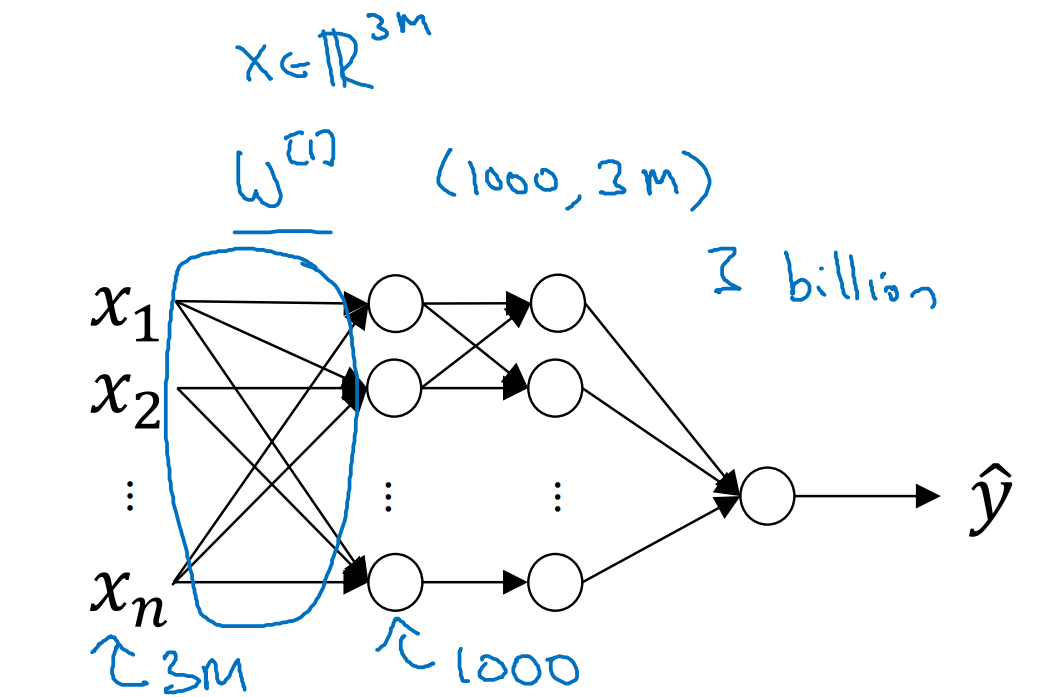 x ∈ ℝ^{3M}
W^{[1]} (1000, 3M)
3 billion
x_1
x_2
⋮
⋮
⋮
ŷ
x_n
3M
1000